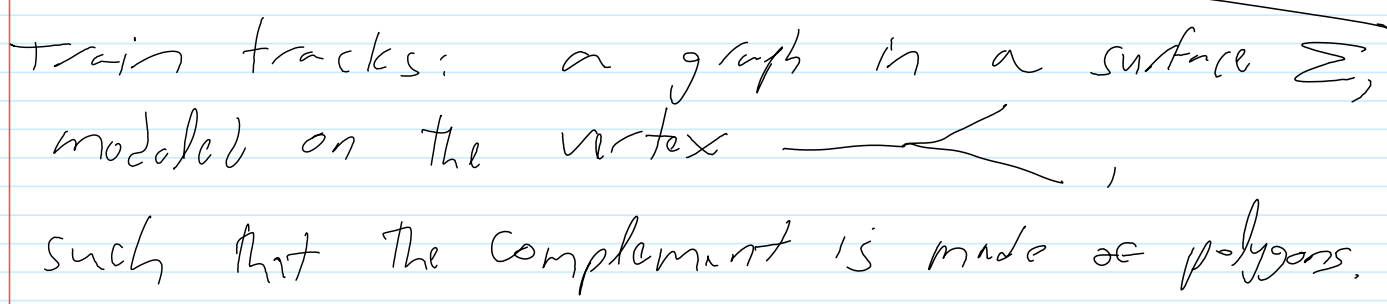 Train tracks: a graph in a surface Σ,
modeled on the vertex ,
such that the complement is made of polygons.